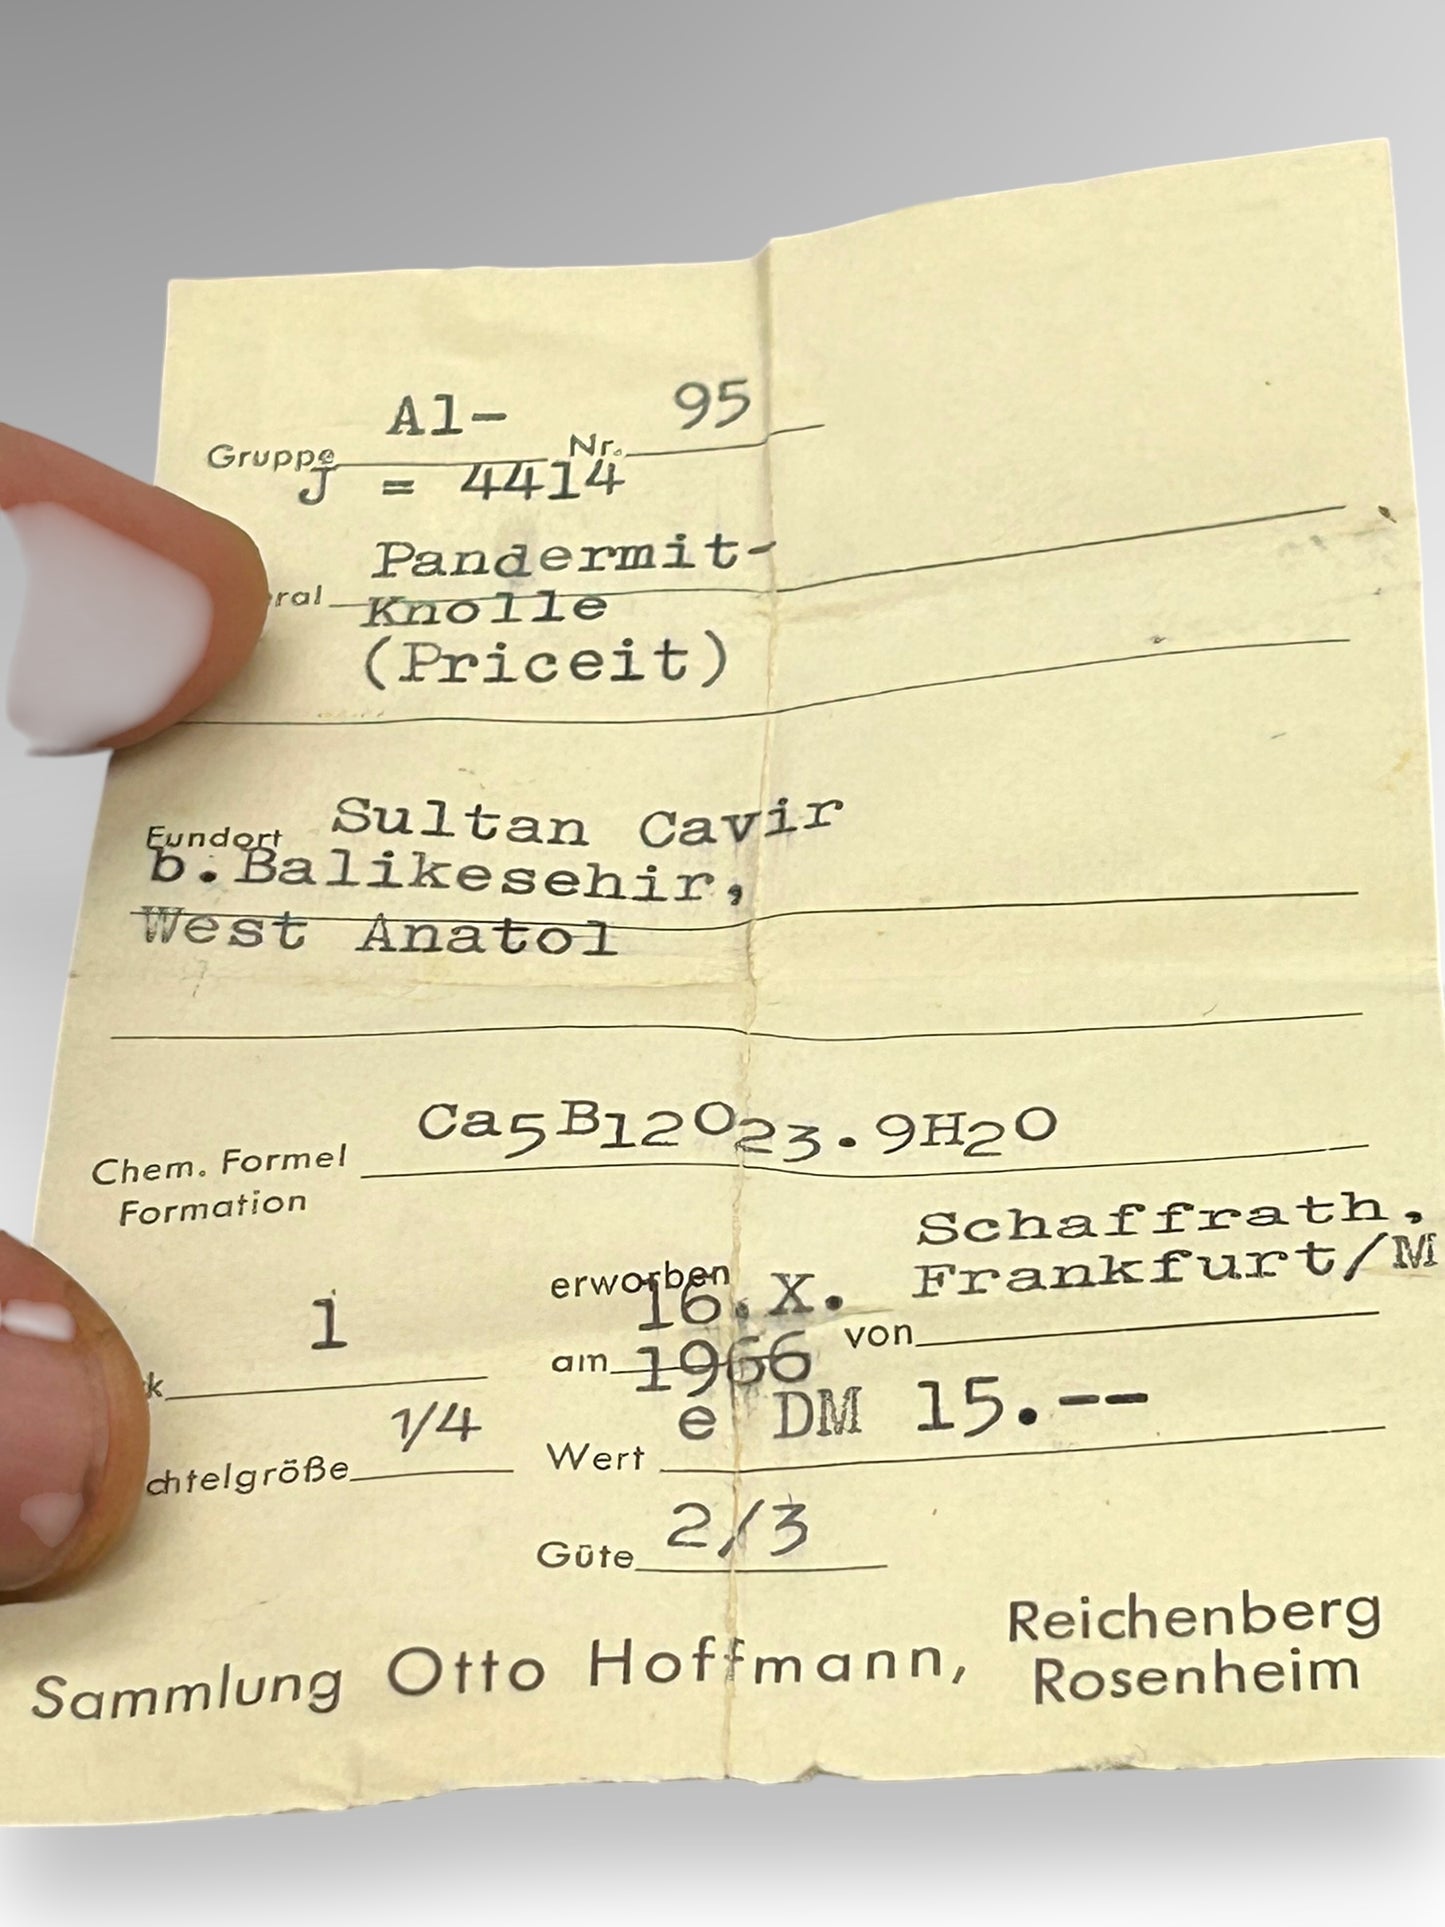 Gruppe Al- Nr. 95
J = 4414
Pandermit-
Knolle
(Priceit)
Fundort Sultan Cavir
b.Balikesehir,
West Anatol
Chem. Formel Ca5B12O23.9H2O
Formation
erworben
am 16.X.
1966
von Schaffrath,
Frankfurt/M
1
1/4
Wert e DM 15.--
Güte 2/3
Sammlung Otto Hoffmann, Reichenberg
Rosenheim